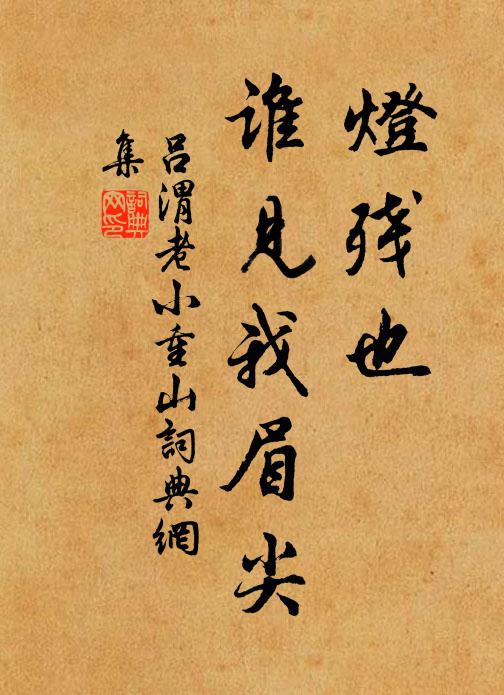 燈残也
谁見我眉尖
吕渭老小重山詞典網
集
詞典网印